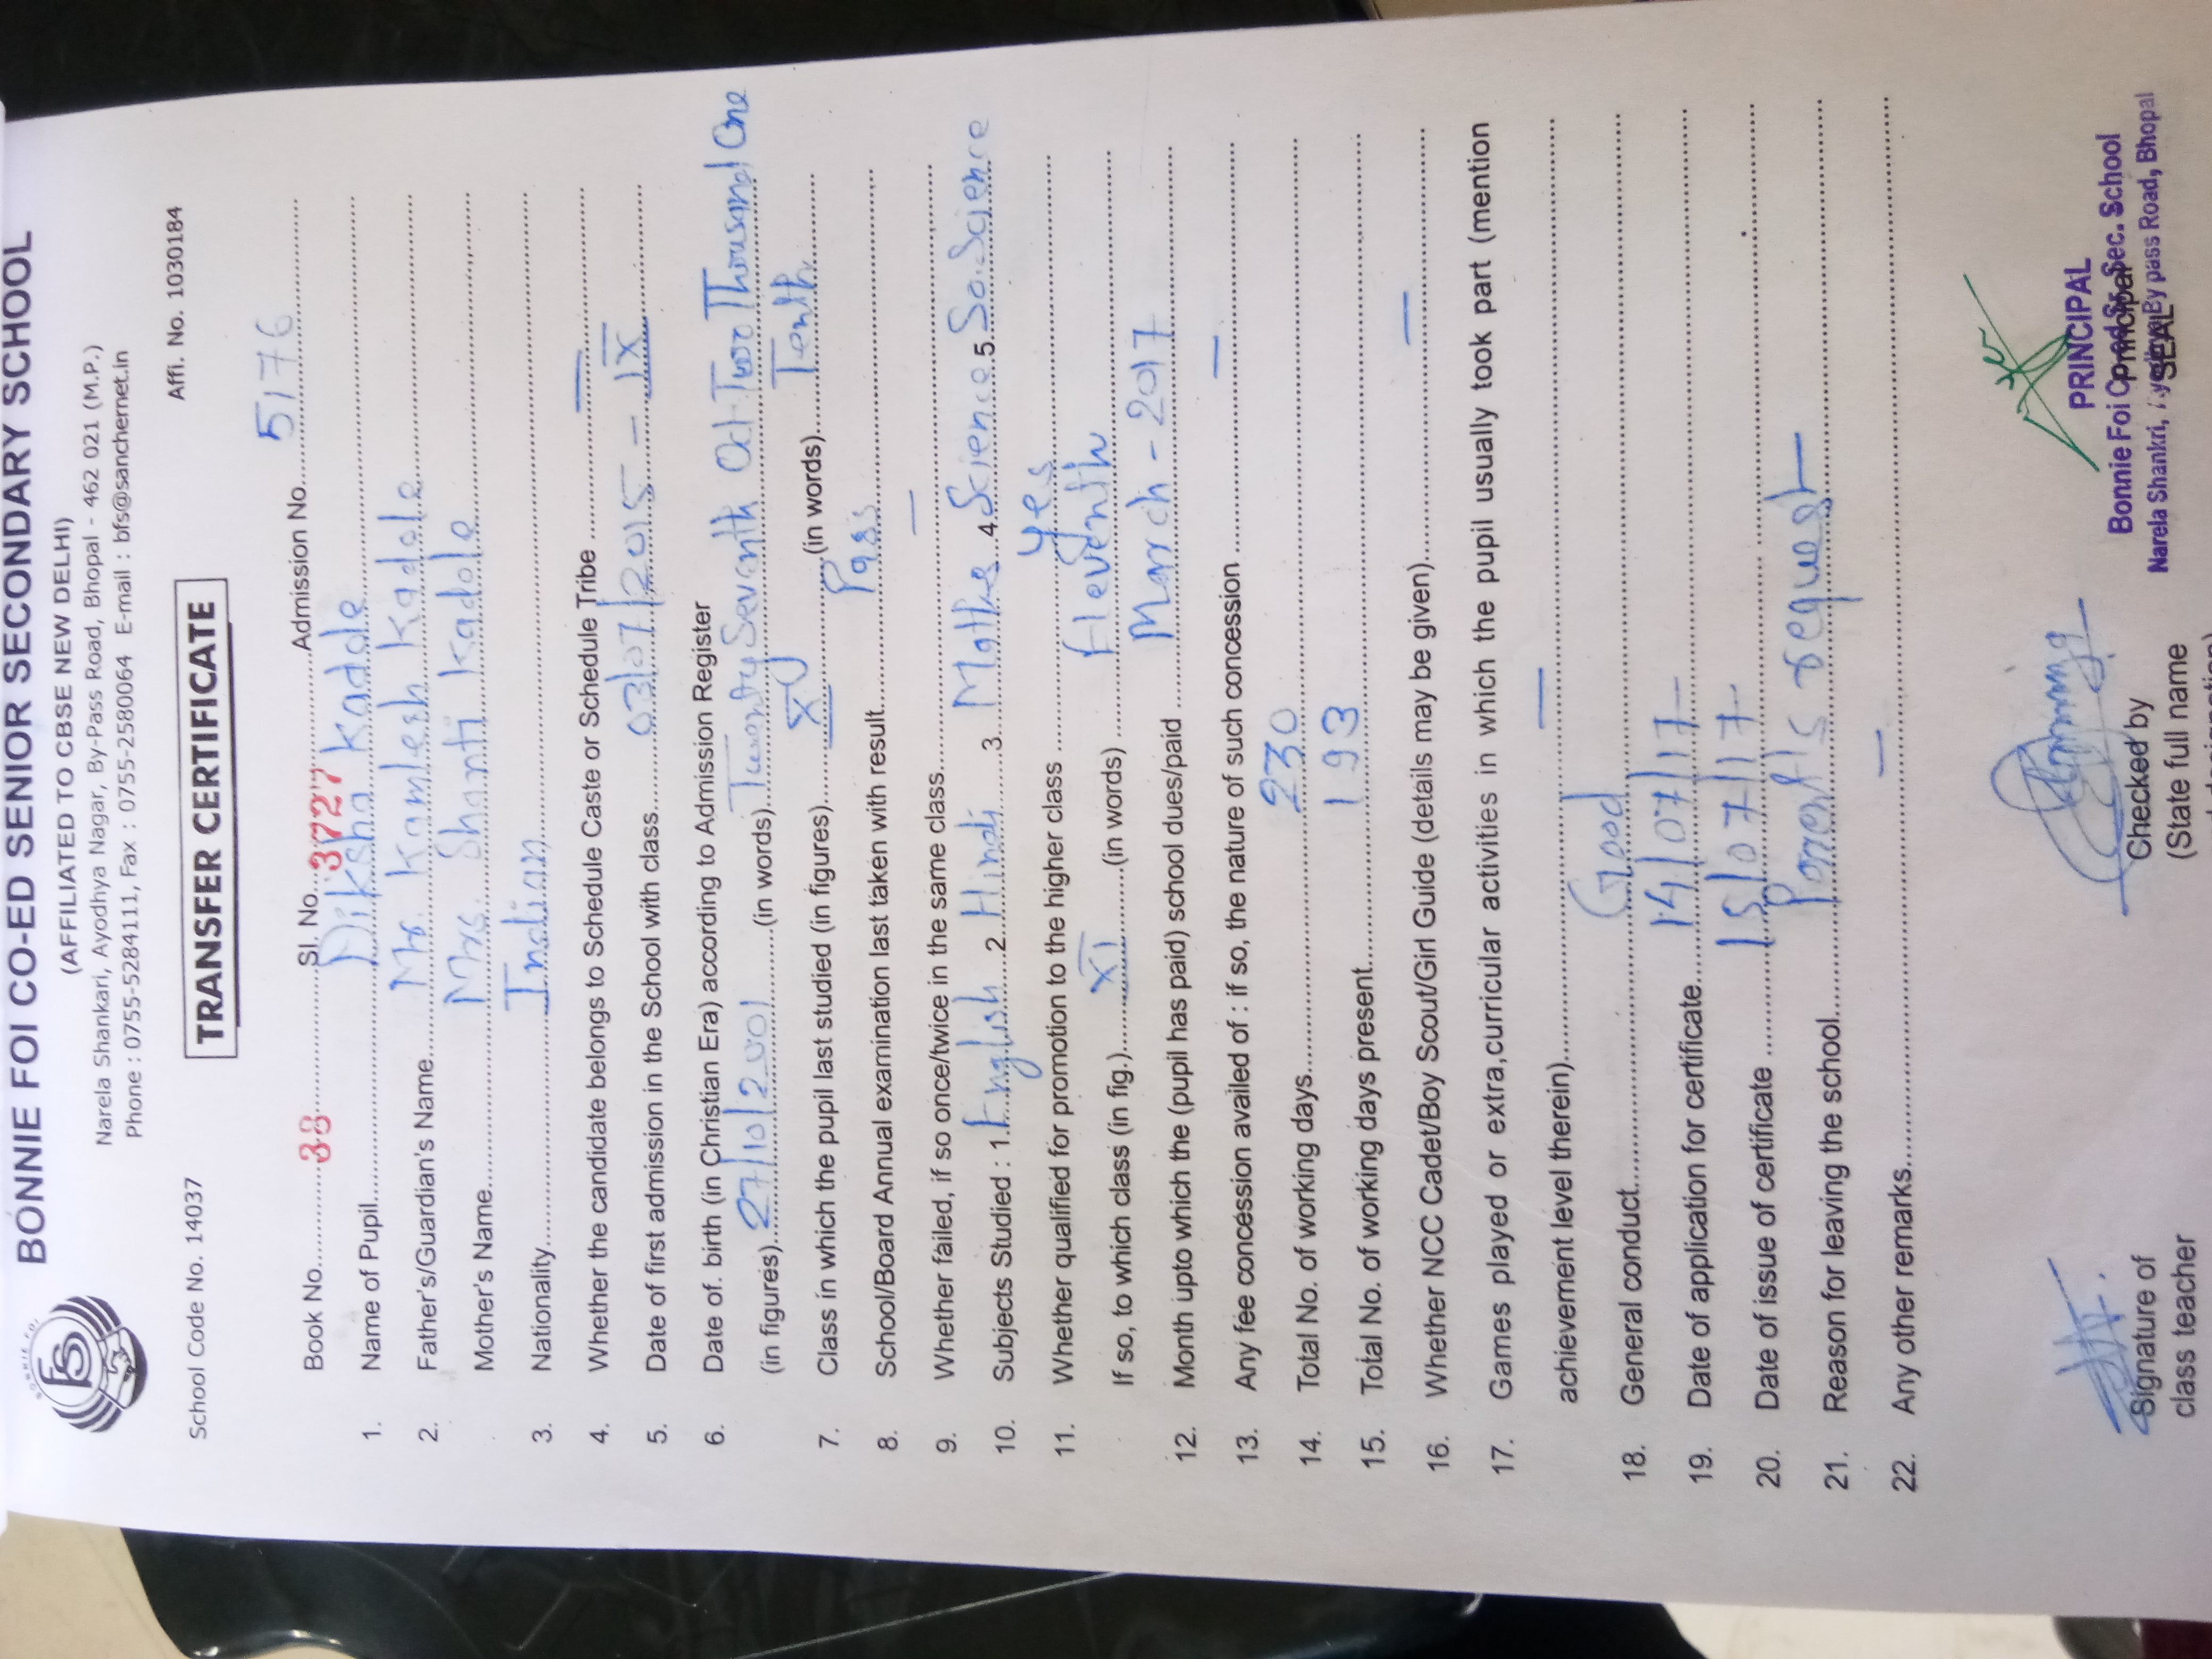 BONNIE FOI CO-ED SENIOR SECONDARY SCHOOL
(AFFILIATED TO CBSE NEW DELHI)
Narela Shankari, Ayodhya Nagar, By-Pass Road, Bhopal - 462 021 (M.P.)
Phone : 0755-5284111, Fax : 0755-2580064 E-mail : bfs@sanchernet.in
School Code No. 14037 Affi. No. 1030184
TRANSFER CERTIFICATE
Book No. 38 Sl. No. 3727 Admission No. 5176
1. Name of Pupil Diksha Kadole
2. Father's/Guardian's Name Mr. Kamlesh Kadole
Mother's Name Mrs. Shanti Kadole
3. Nationality Indian
4. Whether the candidate belongs to Schedule Caste or Schedule Tribe —
5. Date of first admission in the School with class 03/07/2015 - IX
6. Date of. birth (in Christian Era) according to Admission Register
(in figures) 27/10/2001 (in words) Twenty Seventh Oct Two Thousand One
7. Class in which the pupil last studied (in figures) X (in words) Tenth
8. School/Board Annual examination last taken with result Pass
9. Whether failed, if so once/twice in the same class —
10. Subjects Studied : 1. English 2 Hindi 3. Maths 4. Science 5. So. Science
11. Whether qualified for promotion to the higher class Yes
If so, to which class (in fig.) XI (in words) Eleventh
12. Month upto which the (pupil has paid) school dues/paid March - 2017
13. Any fee concession availed of : if so, the nature of such concession —
14. Total No. of working days 230
15. Total No. of working days present 193
16. Whether NCC Cadet/Boy Scout/Girl Guide (details may be given) —
17. Games played or extra,curricular activities in which the pupil usually took part (mention
achievement level therein) —
18. General conduct Good
19. Date of application for certificate 14/07/17
20. Date of issue of certificate 15/07/17
21. Reason for leaving the school Parents request
22. Any other remarks —
Signature of
class teacher
Checked by
(State full name
PRINCIPAL
Bonnie Foi Co-ed Sr. Sec. School
Narela Shankri, By pass Road, Bhopal
Principal
SEAL